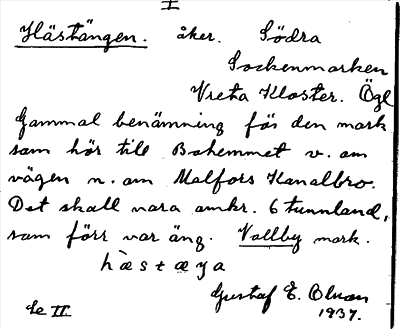 I
Hästängen. åker. Södra
Sockenmarken
Vreta Kloster. Ögl
Gammal benämning för den mark
som hör till Bohemmet v. om
vägen n. om Malfors Kanalbro.
Det skall vara omkr. 6 tunnland,
som förr var äng. Vallby mark.
hàstæŋa
Gustaf E. Olson
Le II 1937.